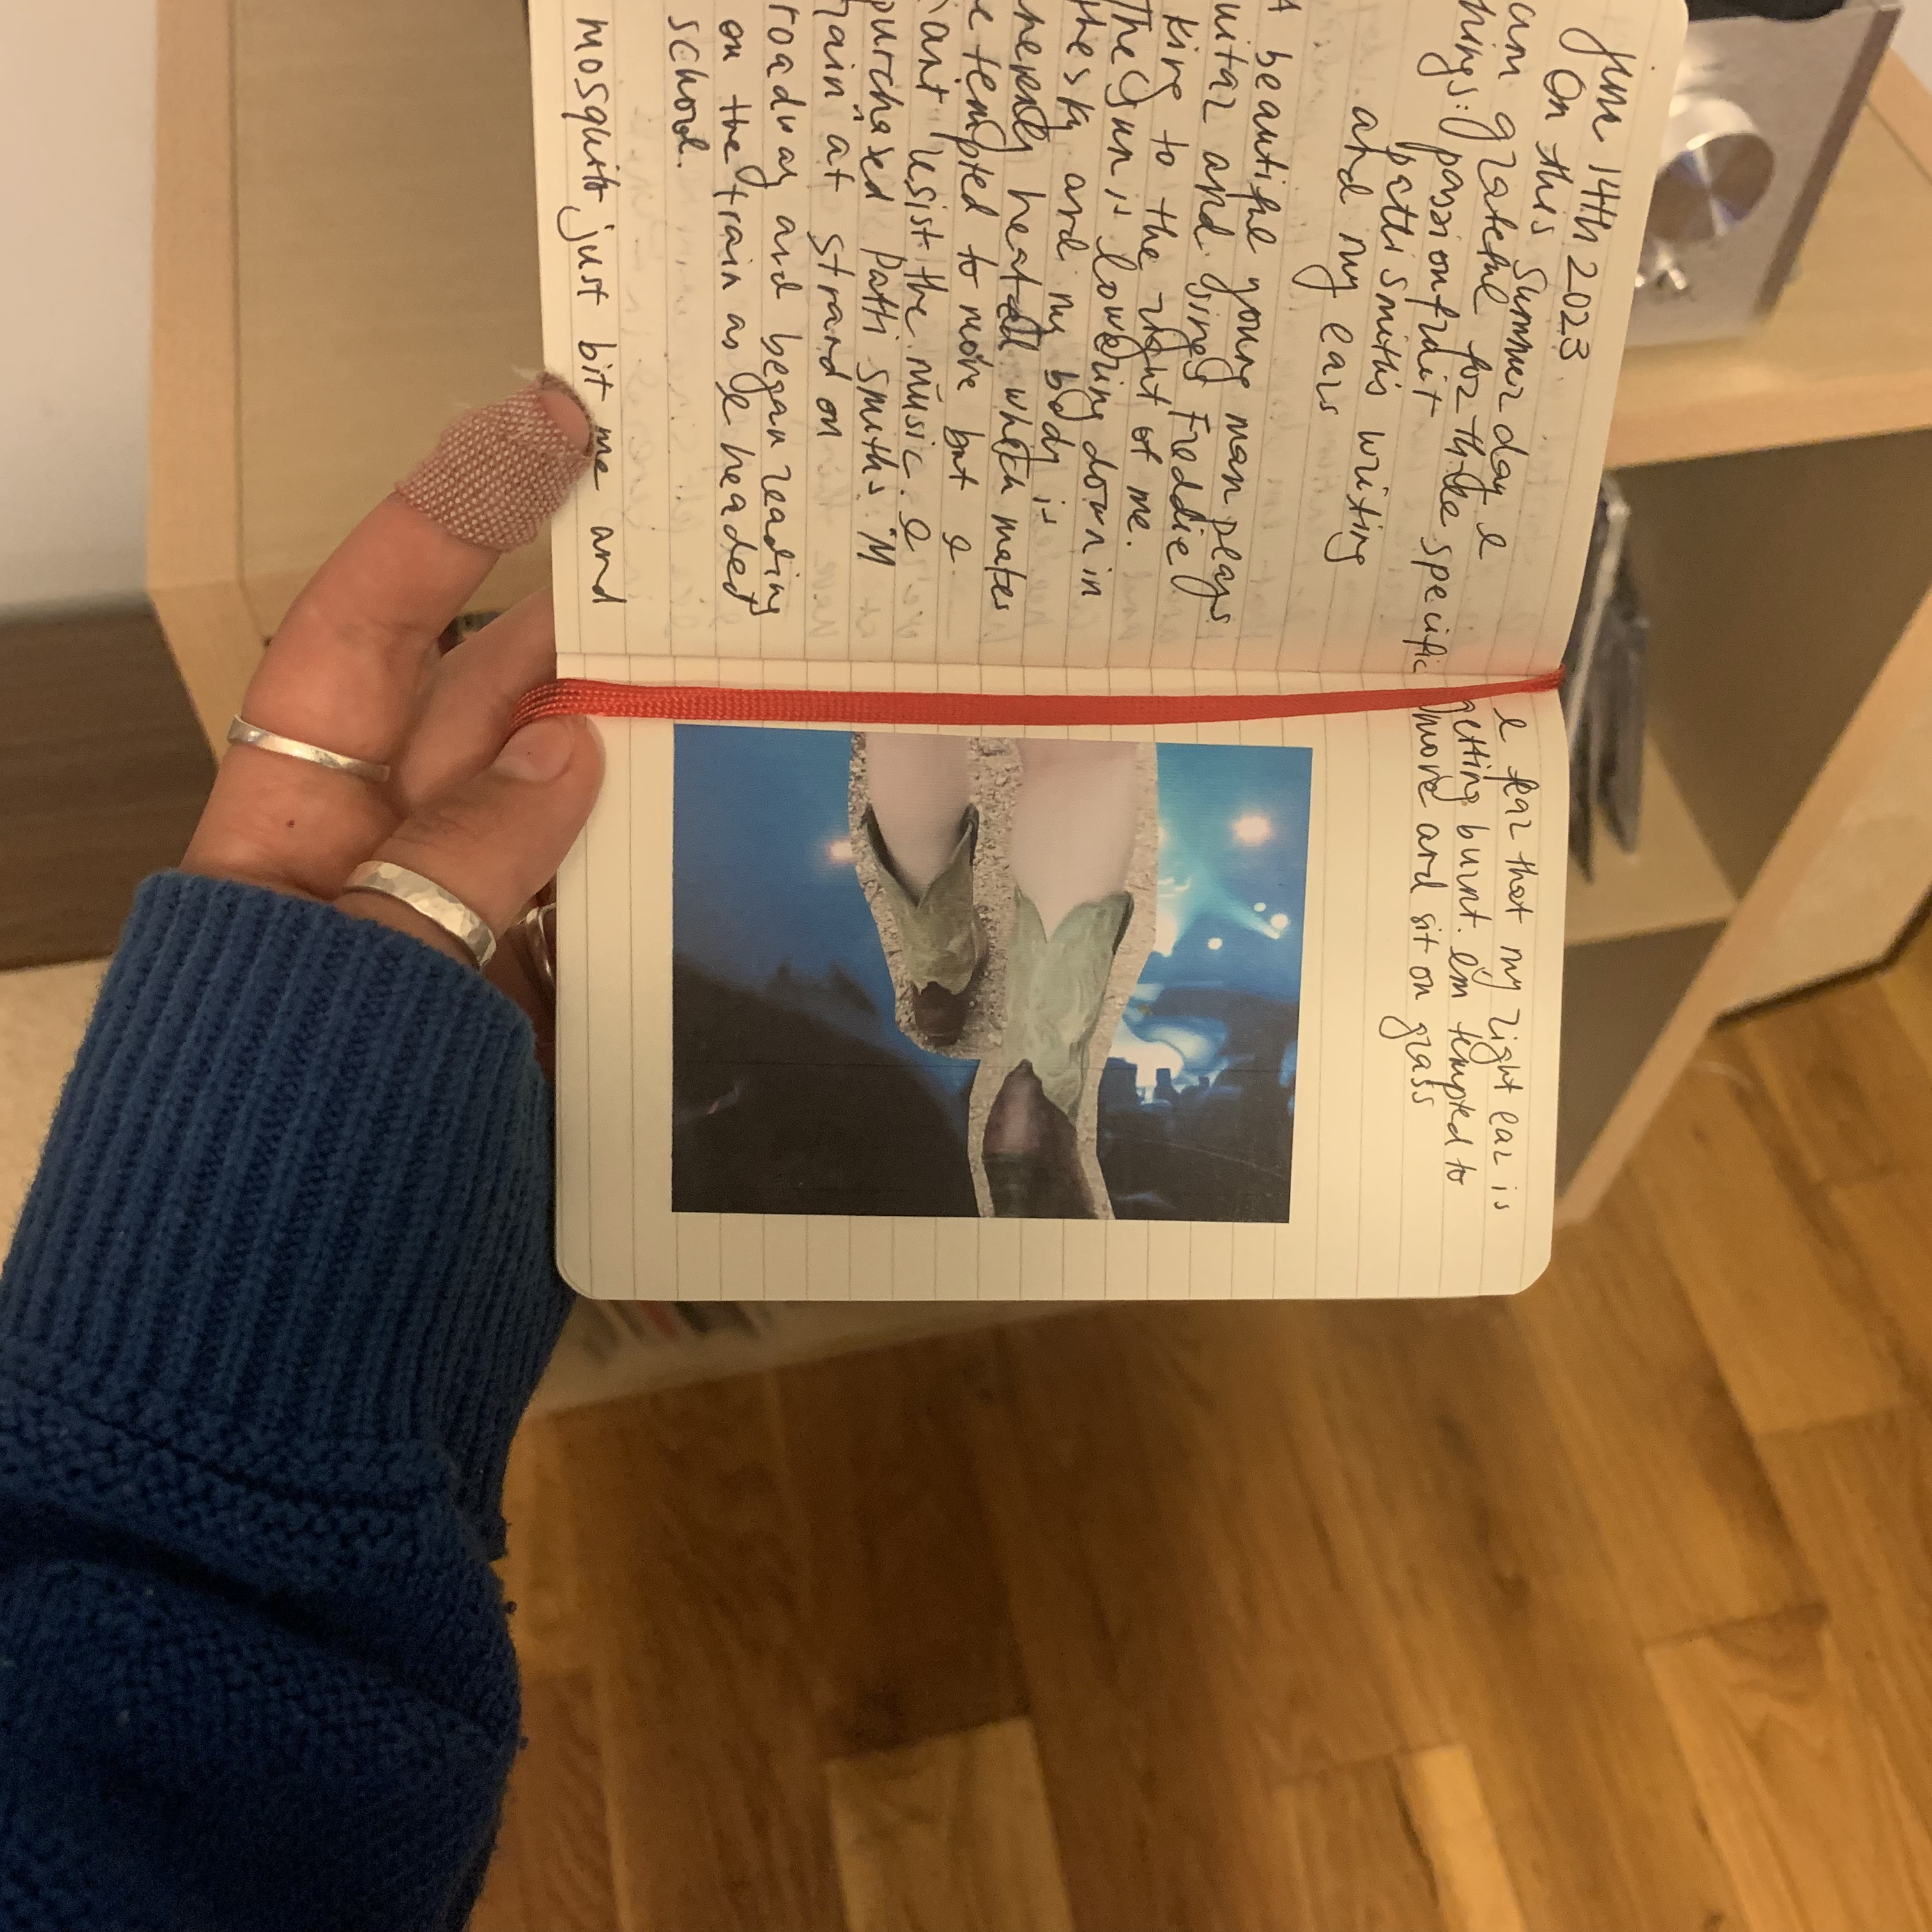 June 14th 2023
On this summer day I
am grateful for three specific
things: passionfruit
patti smith's writing
and my ears
A beautiful young man plays
uitar and sings Freddie
King to the right of me.
The sun is lowering down in
the sky and my body is
inherently heated which makes
me tempted to move but I
cant resist the music. I
purchased Patti Smith's "M
rain" at Strand on
roadway and began reading
on the train as I headed
school.
mosquito just bit me and
I fear that my right ear is
getting burnt. I'm tempted to
move and sit on grass